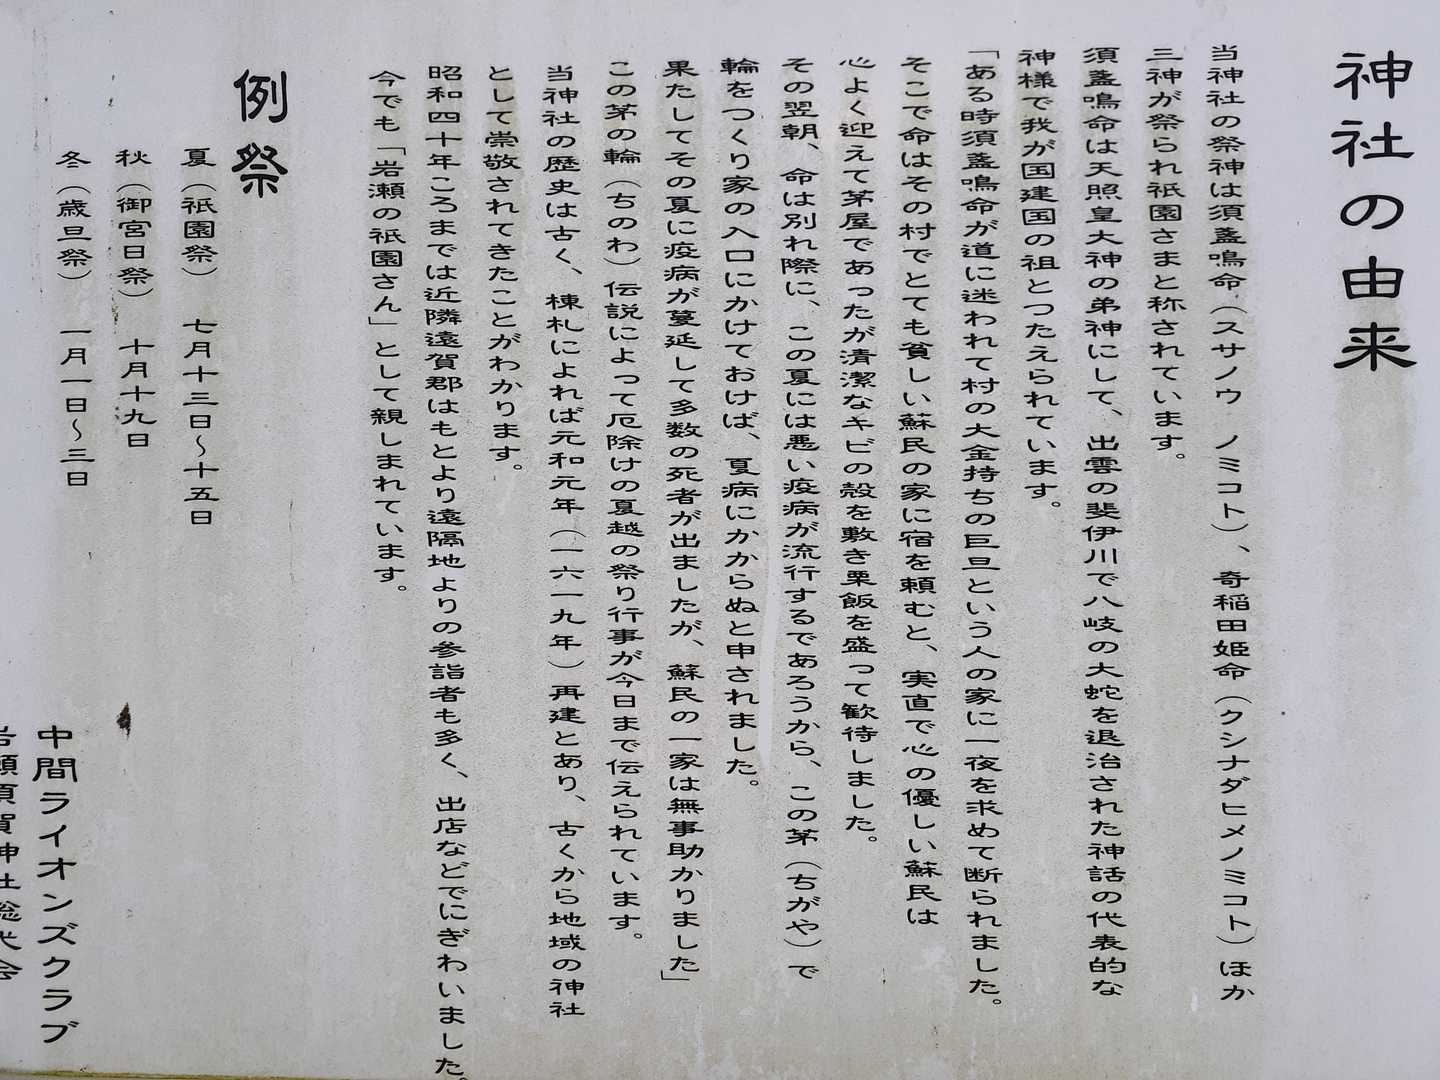 神社の由来
当神社の祭神は須盞鳴命（スサノウ　ノミコト）、奇稲田姫命（クシナダヒメノミコト）ほか
三神が祭られ祇園さまと称されています。
須盞鳴命は天照皇大神の弟神にして、出雲の斐伊川で八岐の大蛇を退治された神話の代表的な
神様で我が国建国の祖とつたえられています。
「ある時須盞鳴命が道に迷われて村の大金持ちの巨旦という人の家に一夜を求めて断られました。
そこで命はその村でとても貧しい蘇民の家に宿を頼むと、実直で心の優しい蘇民は
心よく迎えて茅屋であったが清潔なキビの殻を敷き栗飯を盛って歓待しました。
その翌朝、命は別れ際に、この夏には悪い疫病が流行するであろうから、この茅（ちがや）で
輪をつくり家の入口にかけておけば、夏病にかからぬと申されました。
果たしてその夏に疫病が蔓延して多数の死者が出ましたが、蘇民の一家は無事助かりました」
この茅の輪（ちのわ）伝説によって厄除けの夏越の祭り行事が今日まで伝えられています。
当神社の歴史は古く、棟札によれば元和元年（一六一九年）再建とあり、古くから地域の神社
として崇敬されてきたことがわかります。
昭和四十年ころまでは近隣遠賀郡はもとより遠隔地よりの参詣者も多く、出店などでにぎわいました。
今でも「岩瀬の祇園さん」として親しまれています。
例祭
夏（祇園祭）　七月十三日～十五日
秋（御宮日祭）　十月十九日
冬（歳旦祭）　一月一日～三日
中間ライオンズクラブ
岩瀬須賀神社総代会